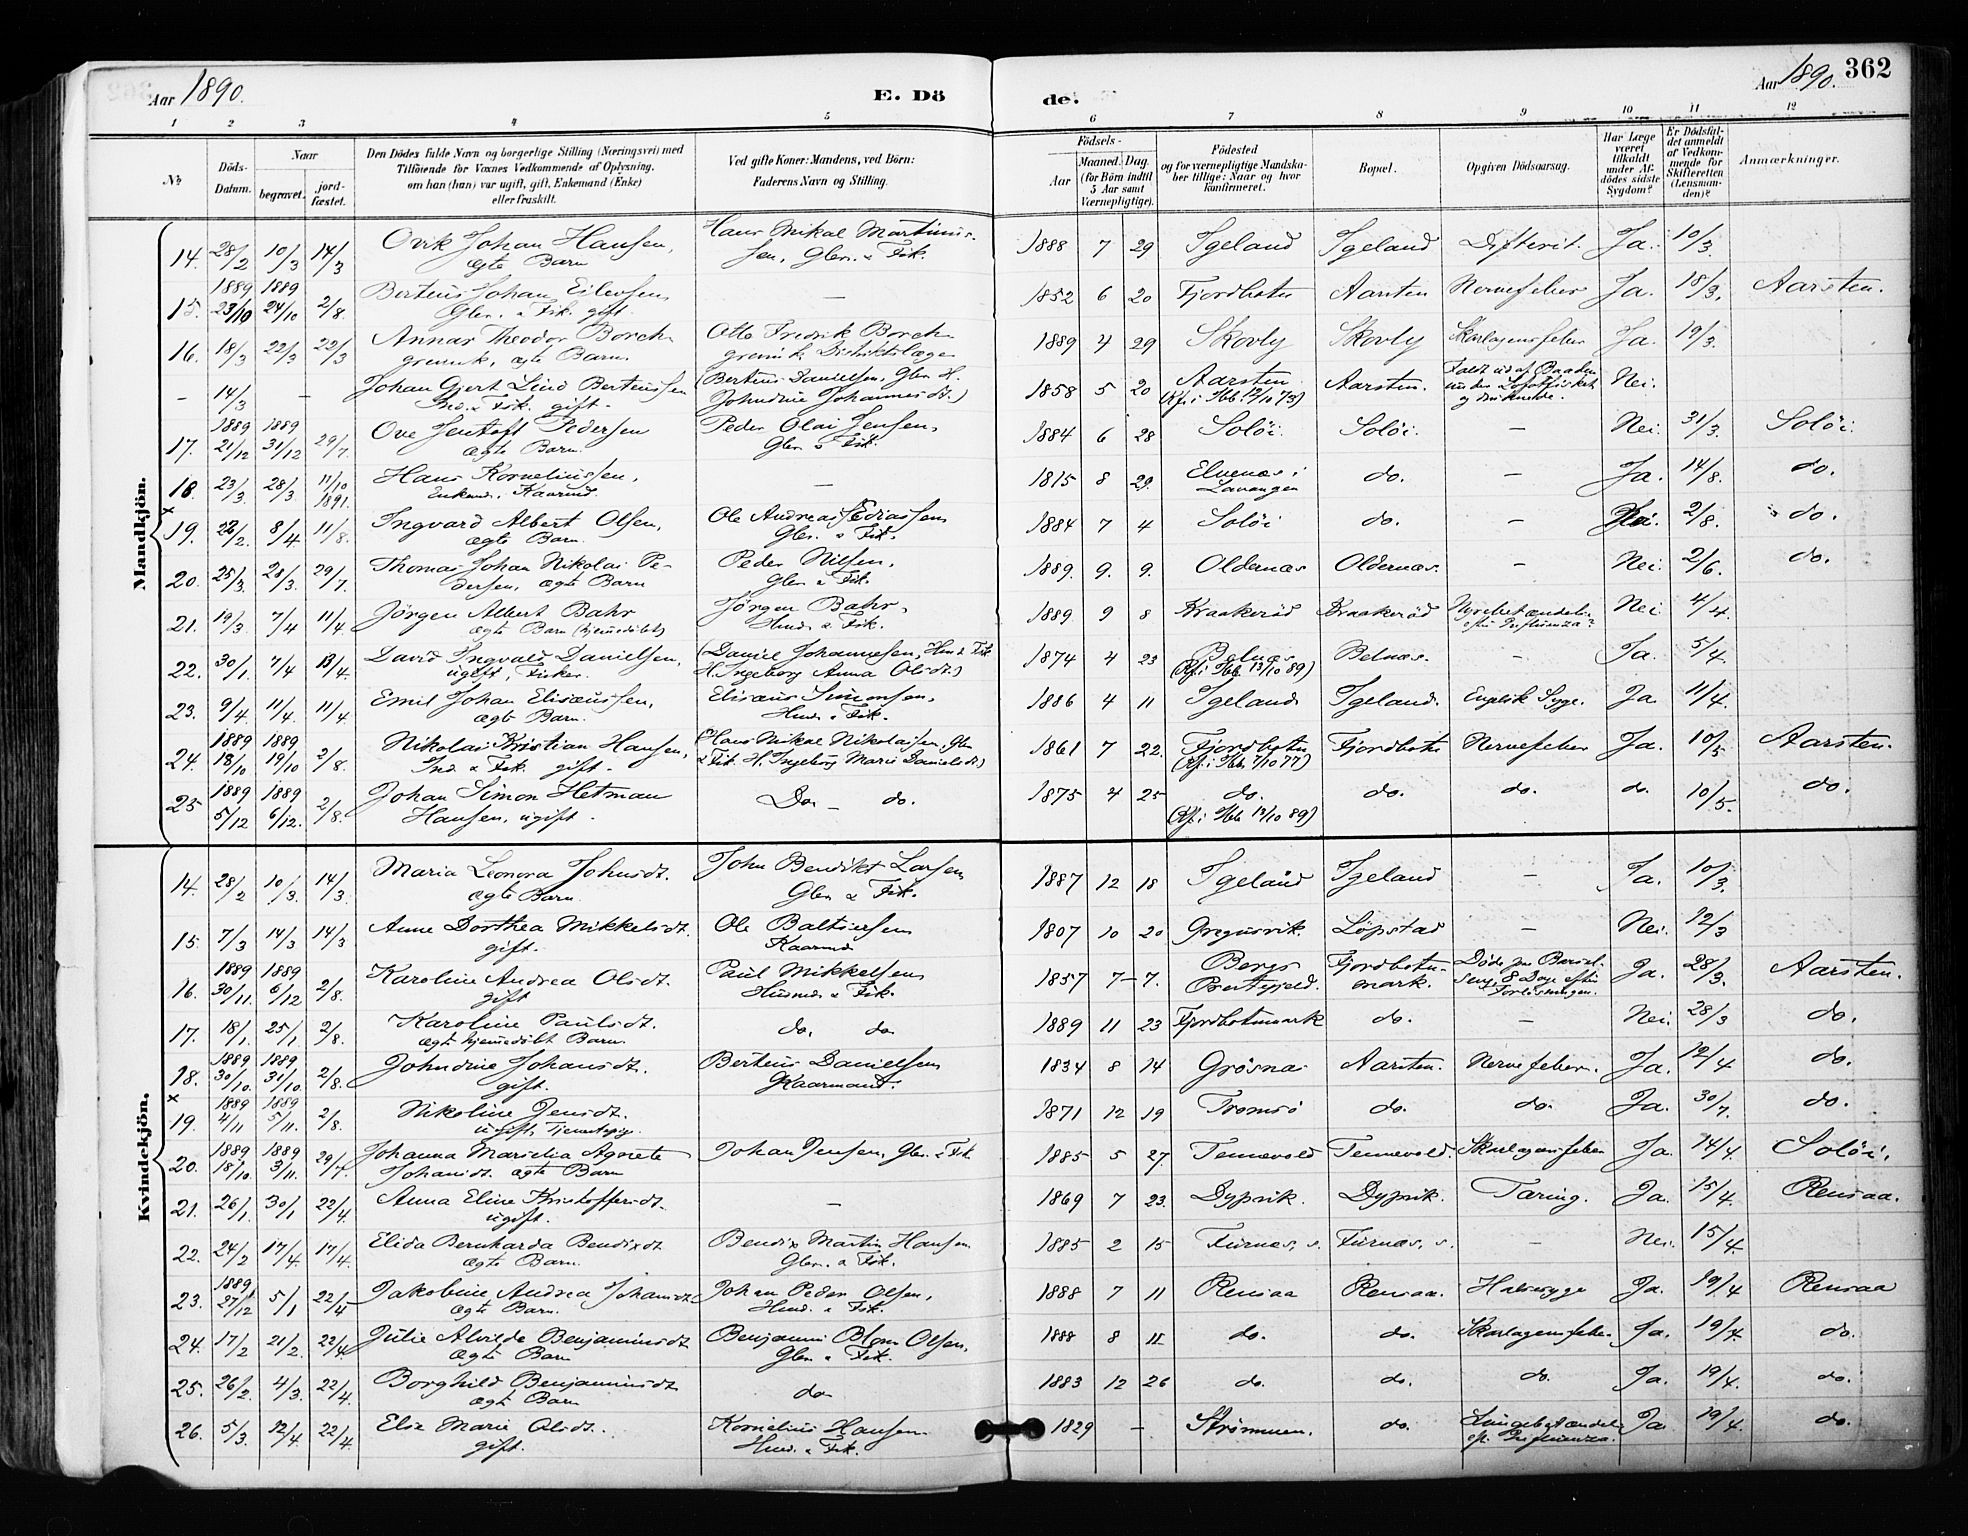 Aar 1890.
E. Döde.
Aar 1890. 362
1 2 3 4 5 6 7 8 9 10 11 12
№
Döds-Datum.
Naar
begravet.
jord-fæstet.
Den Dödes fulde Navn og borgerlige Stilling (Næringsvei) med
Tilföiende for Voxnes Vedkommende af Oplysning,
om han (hun) var ugift, gift, Enkemand (Enke)
eller fraskilt.
Ved gifte Koner: Mandens, ved Börn:
Faderens Navn og Stilling.
Födsels-
Aar
Maaned. Dag.
(for Börn indtil
5 Aar samt
Værnepligtige).
Födested
og for værnepligtige Mandska-
ber tillige: Naar og hvor
konfirmeret.
Bopæl.
Opgiven Dödsaarsag.
Har Læge
været
tilkaldt
under Af-
dödes sidste
Sygdom?
Er Dödsfal-
det anmeldt
af Vedkom-
mende for
Skifteretten
(Lensman-
den)?
Anmærkninger.
Mandkjön.
14. 28/2 10/3 14/3 Ovik Johan Hansen, Hans Mikal Martinus- 1888 7 29 Igeland Igeland Difterit. Ja. 10/3.
ægte Barn sen, Gbr. & Fisk.
15. 1889 23/10 1889 24/10 2/8. Berteus Johan Eilevsen — 1852 6 20 Fjordbotn Aarsten Nervefeber Ja. 18/3. Aarsten.
Gbr. & Fisk. gift.
16. 18/3 22/3 22/3 Annar Theodor Borch- Otto Fredrik Borch- 1889 4 29 Skovly Skovly Skarlagensfeber Ja. 19/3.
grevink, ægte Barn. grevink, Distriktslæge
– 14/3 – Johan Gjert Lind Berteussen (Berteus Danielsen, Gbr. H. 1858 5 20 Aarsten Aarsten. Faldt ud af Baaden Nei.
Ind. & Fisk. gift. Johndine Johannesdt.) (Kf. i Ibb. 12/10 73) under Lofotfisket
og druknede.
17. 1889 21/12 1889 31/12 29/7. Ove Jentoft Pedersen Peder Olai Jensen, 1884 6 28 Solöi. Solöi. – Nei. 31/3. Solöi.
ægte Barn. Gbr. & Fisk.
18. 23/3 28/3 11/10 1891. Hans Korneliussen, — 1815 8 29. Elvenæs i do. – Ja. 14/8. do.
Enkem., Kaarmd. Lavangen
x
19. 22/2. 8/4 11/8. Ingvard Albert Olsen, Ole Andreas Ediassen 1884 7 4 Solöi do. – Nei. 2/8. do.
ægte Barn. Gbr. & Fisk.
20. 25/3. 28/3. 29/7 Thomas Johan Nikolai Pe- Peder Nilsen, 1889. 9. 9. Oldernæs Oldernæs. – Nei. 2/6. do.
dersen, ægte Barn Gbr. & Fisk.
21. 19/3. 7/4 11/4. Jörgen Albert Bahr Jörgen Bahr, 1889 9 8 Kraakeröd Kraakeröd Nyrebetændelse Nei 4/4.
ægte Barn (hjemmedöbt) Husd. & Fisk. efter Influenza?
22. 30/1. 7/4 13/4. David Ingvald Danielsen, (Daniel Johannesen, Hus. & Fisk 1874 4 23 Belnæs Belnæs. – Ja. 5/4
ugift, Fisker. H. Ingeborg Anna Olsdt.) (Kf. i Ibb. 13/10 89)
23. 9/4. 11/4. 11/4 Emil Johan Elisæussen, Elisæus Simonsen, 1886 4 11 Igeland Igeland. Engelsk Syge. Ja. 11/4.
ægte Barn. Husd. & Fisk.
24. 1889 18/10 1889 19/10 2/8. Nikolai Kristian Hansen, (Hans Mikal Nikolaisen, Gbr. 1861 7 22. Fjordbotn Fjordbotn Nervefeber Ja. 10/5 Aarsten.
Ind. & Fisk. gift. & Fisk. H. Ingeborg Marie Danielsdt.) (Kf. i Ibb. 7/10 77)
25 1889 5/12 1889 6/12. 2/8. Johan Simon Hetman Do. – do. 1875 4 25 do. do. do. do. 10/5. do.
Hansen, ugift. (Kf. i Ibb. 13/10 89)
Kvindekjön.
14. 28/2 10/3. 14/3. Maria Leonora Johnsdt. John Bendikt Larsen 1887 12 18 Igeland Igeland – Ja. 10/3.
ægte Barn. Gbr. & Fisk.
15. 7/3 14/3 14/3 Anne Dorthea Mikkelsdt. Ole Baltsersen 1807 10 20 Gregusvik. Löpstad – Nei. 12/3
gift. Kaarmd
16. 1889 30/11. 1889 6/12 2/8. Karoline Andrea Olsdt. Paul Mikkelsen 1857 7–7. Bergs Fjordbotn- Döde paa Barsel- Ja. 28/3. Aarsten.
gift Husmd. & Fisk. Præstegjeld. mark. seng, 8 Dage efter
Forlösningen.
17. 18/1. 25/1 2/8. Karoline Paulsdt. do. do. 1889 11 23 Fjordbotnmark do. – Nei. 28/3 do.
ægte hjemmedöbt Barn.
18. 1889 30/10. 1889 31/10. 2/8. Johndine Johansdt. Berteus Danielsen 1834 8 14 Grösnæs Aarsten. Nervefeber. Ja. 12/4 do.
gift. Kaarmand.
x
19. 1889 4/11 1889 5/11. 2/8. Nikoline Jensdt. 1871 12 19 Tromsö do. do. Ja. 30/7. do.
ugift, Tjenestepige.
20. 1889 18/10. 1889 3/11. 29/7. Johanna Marselia Agnete Johan Jensen, Gbr. & Fisk. 1885 5 27. Tennevold Tennevold. Skarlagensfeber Ja. 14/4. Solöi.
Johansdt. ægte Barn
21. 26/1. 30/1 22/4. Anna Eline Kristoffersdt. — 1869 7 23. Dyprik. Dyprik. Tæring. Ja. 15/4. Rensaa.
ugift.
22. 24/2 17/4. 17/4. Elida Bernharda Bendixdt Bendix Martin Hansen. 1885 2 15 Furnæs, s. Furnæs, s. – Nei. 15/4.
ægte Barn. Gbr. & Fisk.
23. 1889 27/12 5/1 22/4 Jakobine Andrea Johansdt. Johan Peder Olsen, 1888 7 11 Rensaa Rensaa. Halssyge Ja. 19/4 Rensaa
ægte Barn. Husd. & Fisk.
24. 17/2 21/2. 22/4. Julie Alvilde Benjaminsdt Benjamin Blom Olsen, 1888 8 11 do. do. Skarlagensfeber Ja. 19/4. do.
ægte Barn Gbr. & Fisk.
25. 26/2 4/3. 22/4. Borghild Benjaminsdt do. 1883 12 26 do. do. do. Ja. 19/4. do.
ægte Barn
26. 5/3. 12/4 22/4. Else Marie Olsdt. Kornelius Hansen. 1829 – Strömmen. do. Lungebetændelse Ja. 19/4. do.
gift. Husd. & Fisk. eft. Influenza.